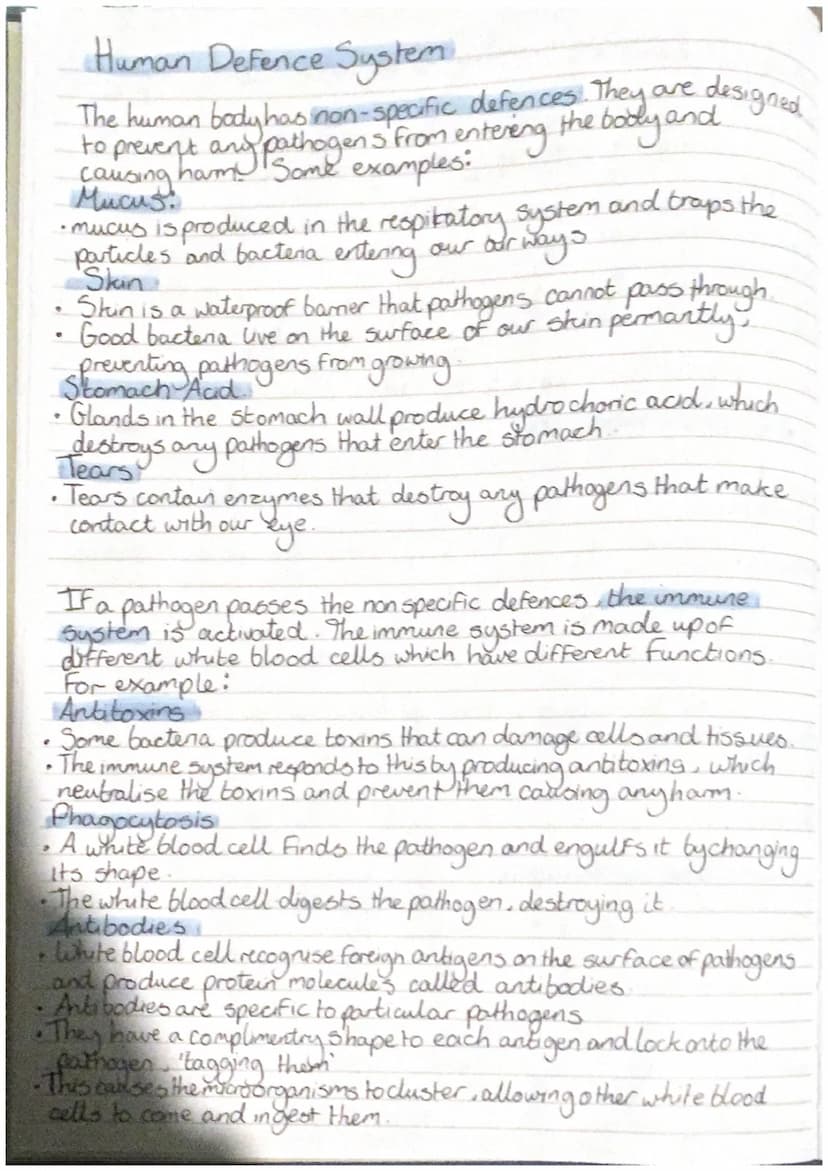 Human Defence System
The human body has non-specific defences. They are designed
to prevent any pathogens from entering the body and
causing harm. Some examples:
Mucus:
• mucus is produced in the respiratory system and traps the
particles and bacteria entering our airways
Skin
• Skin is a waterproof barrier that pathogens cannot pass through.
• Good bacteria live on the surface of our skin permantly,
preventing pathogens from growing.
Stomach Acid.
• Glands in the stomach wall produce hydrochoric acid, which
destroys any pathogens that enter the stomach.
Tears
• Tears contain enzymes that destroy any pathogens that make
contact with our eye.
If a pathogen passes the non specific defences, the immune
system is activated. The immune system is made up of
different white blood cells which have different functions.
For example:
Antitoxins
• Some bacteria produce toxins that can damage cells and tissues.
• The immune system responds to this by producing antitoxins, which
neutralise the toxins and prevent them causing any harm.
Phagocytosis
• A white blood cell finds the pathogen and engulfs it by changing
its shape.
• The white blood cell digests the pathogen, destroying it.
Antibodies
• White blood cell recognise foreign antigens on the surface of pathogens
and produce protein molecules called antibodies.
• Antibodies are specific to particular pathogens
• They have a complimentry shape to each antigen and lock onto the
pathogen, 'tagging them'
• This causes the microorganisms to cluster, allowing other white blood
cells to come and ingest them.